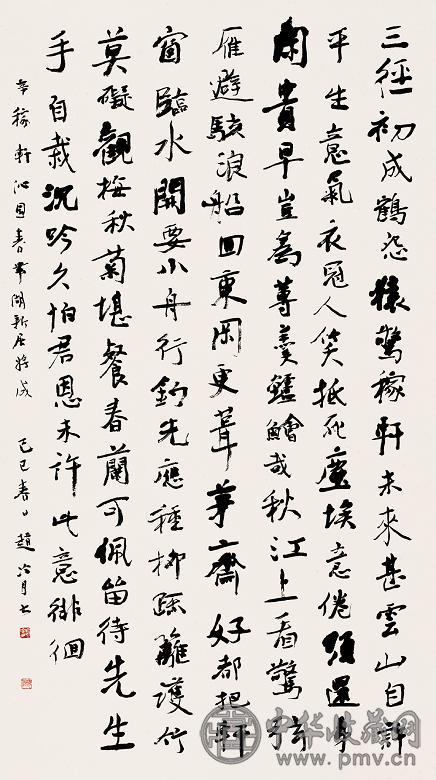 三徑初成鶴怨猿驚稼軒未來甚雲山自許
平生意氣衣冠人笑抵死塵埃意倦須還身
閑貴早豈為蓴羹鱸鱠哉秋江上看驚弦
雁避駭浪船回東岡更葺茅齋好都把軒
窗臨水開要小舟行釣先應種柳疏籬護竹
莫礙觀梅秋菊堪餐春蘭可佩留待先生
手自栽沉吟久怕君恩未許此意徘徊
辛稼軒沁園春帶湖新居將成 己巳春日 趙冷月書
中华收藏网
www.pmv.cn